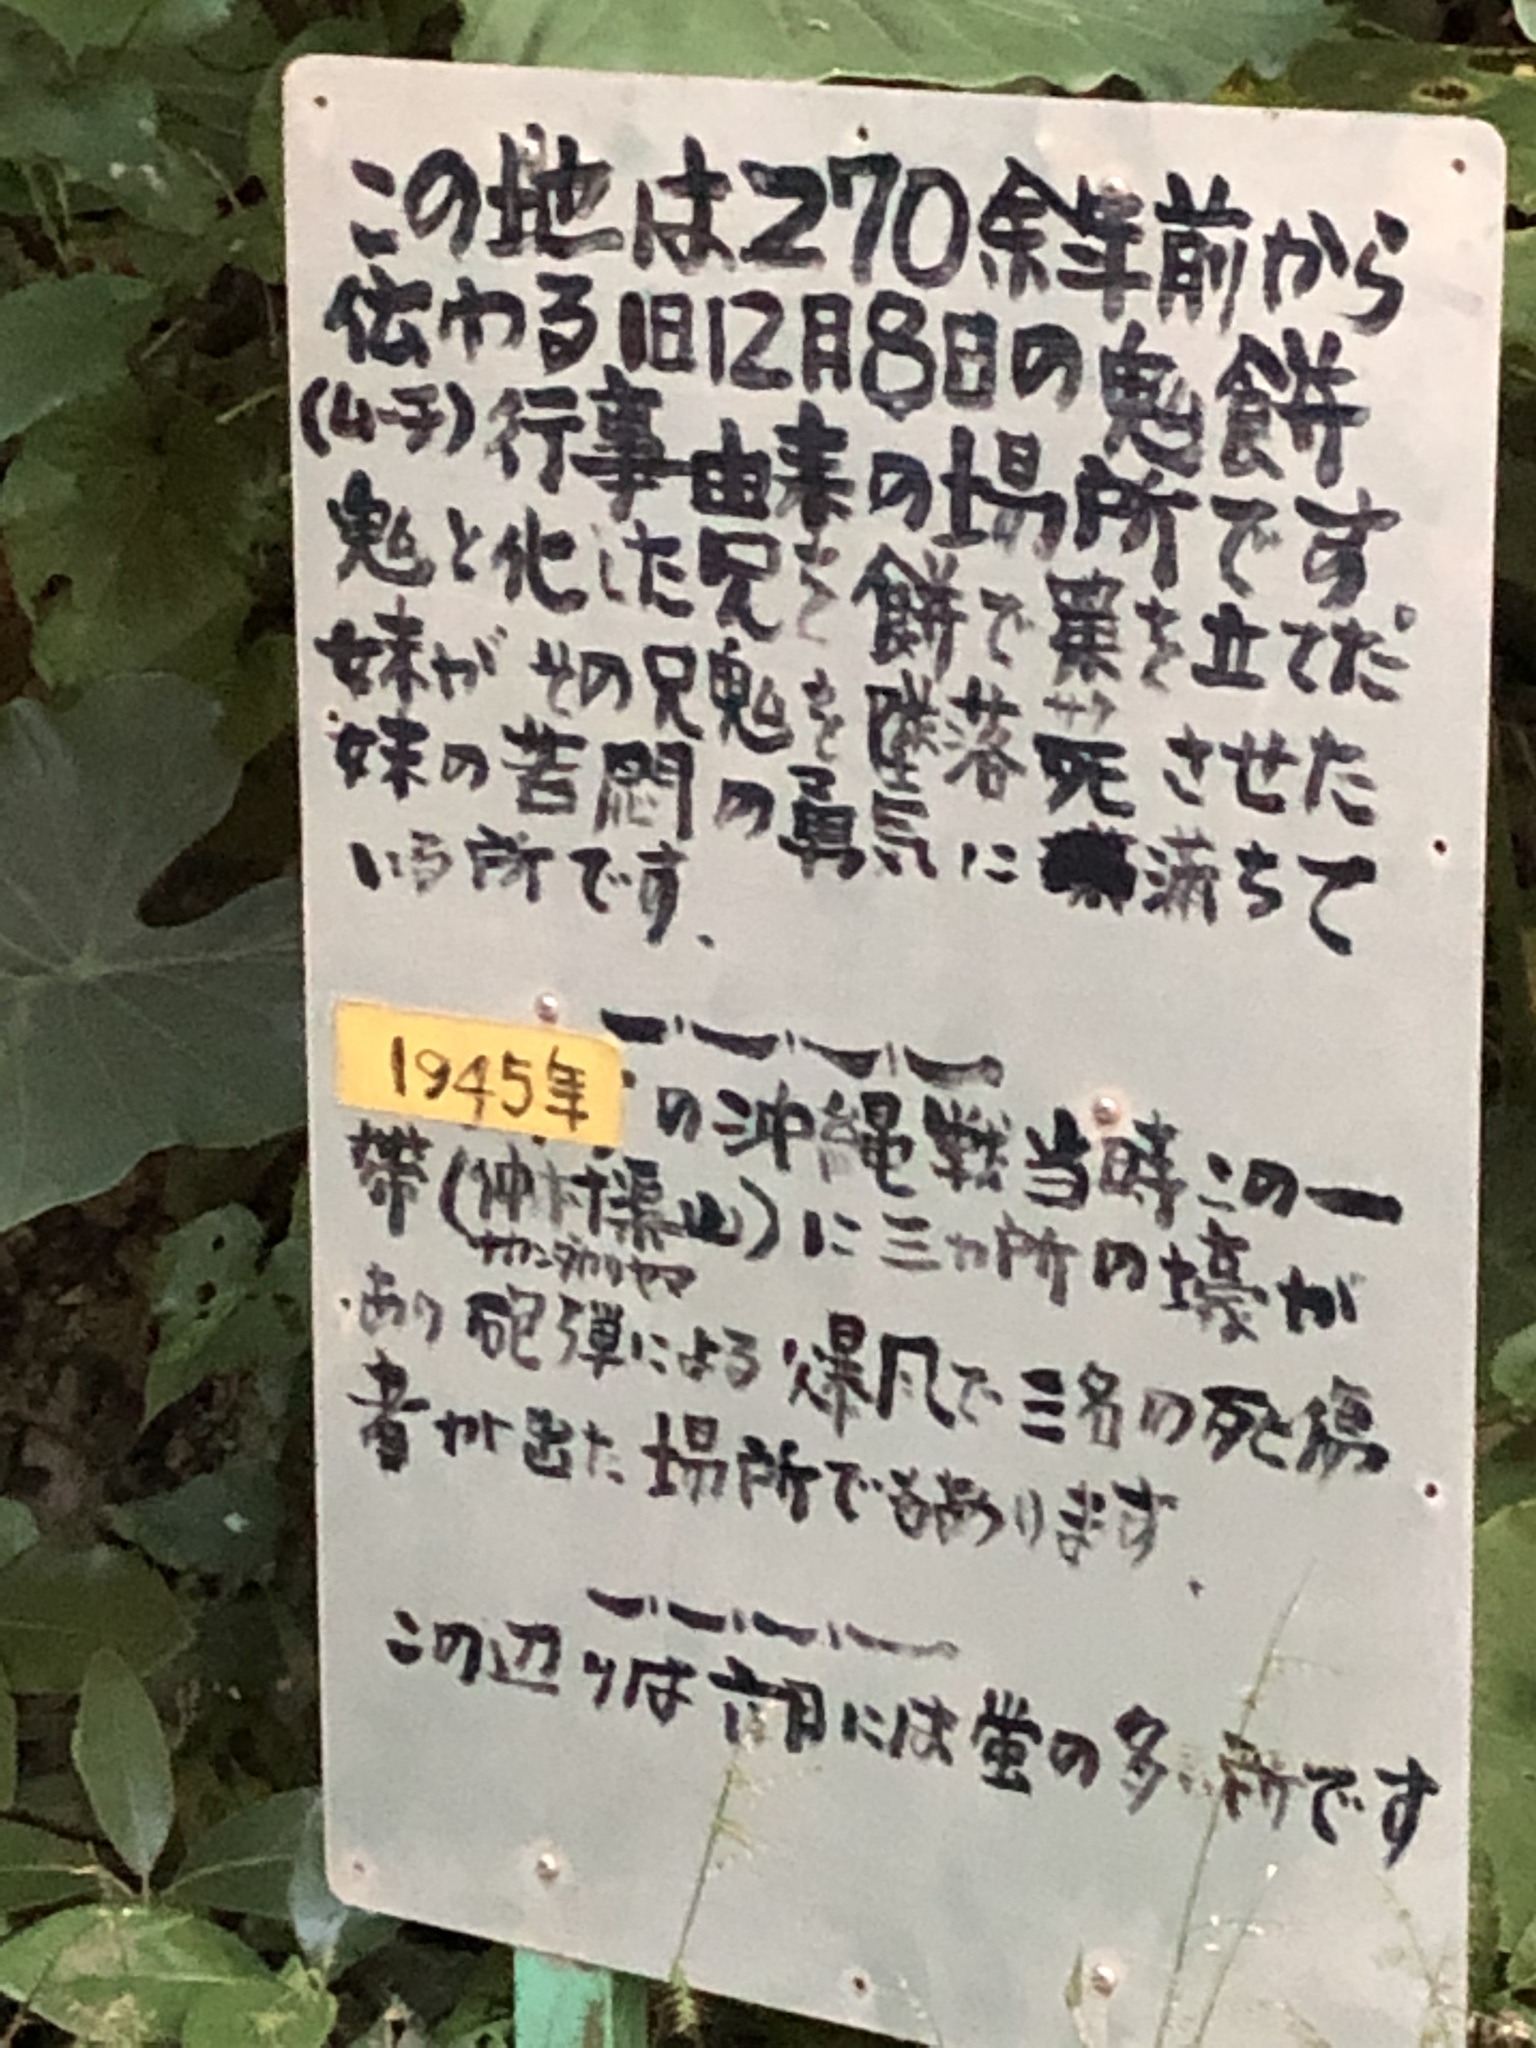 この地は270余年前から
伝わる旧12月8日の鬼餅
(ムーチ)行事由来の場所です
鬼と化した兄を餅で策を立てた
妹がその兄鬼を墜落死させた
妹の苦悶の勇気に満ちて
いる所です、
1945年の沖縄戦当時この一
帯(仲村渠山)に三ヵ所の壕が
ナカンダカリヤマ
あり砲弾による爆風で三名の死傷
者が出た場所でもあります、
この辺りは六月には蛍の多い所です